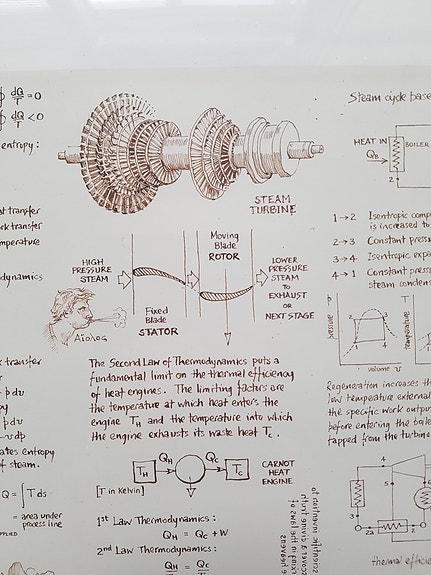 ∮ dQ/T = 0
∮ dQ/T < 0
entropy :
transfer
transfer
temperature
dynamics
STEAM
TURBINE
HIGH
PRESSURE
STEAM
Moving
Blade
ROTOR
LOWER
PRESSURE
STEAM
TO
EXHAUST
OR
NEXT STAGE
Fixed
Blade
STATOR
Αἴολος
The Second Law of Thermodynamics puts a
fundamental limit on the thermal efficiency
of heat engines. The limiting factors are
the temperature at which heat enters the
engine TH and the temperature into which
the engine exhausts its waste heat TC.
transfer
p dv
p dv
v dp
entropy
of steam.
Q = ∫ T ds
= area under
process line
TH
QH
QC
TC
CARNOT
HEAT
ENGINE
[T in Kelvin]
1st Law Thermodynamics :
QH = QC + W
2nd Law Thermodynamics :
QH = QC
Steam cycle base
HEAT IN
BOILER
2
1 → 2 Isentropic comp
is increased to
2 → 3 Constant press
3 → 4 Isentropic expa
4 → 1 Constant press
steam condens
P
pressure
2
3
1
4
volume v
T
temperature
Regeneration increases th
low temperature external
the specific work output
before entering the boile
tapped from the turbine
4
3
5
6
2a
thermal efficie